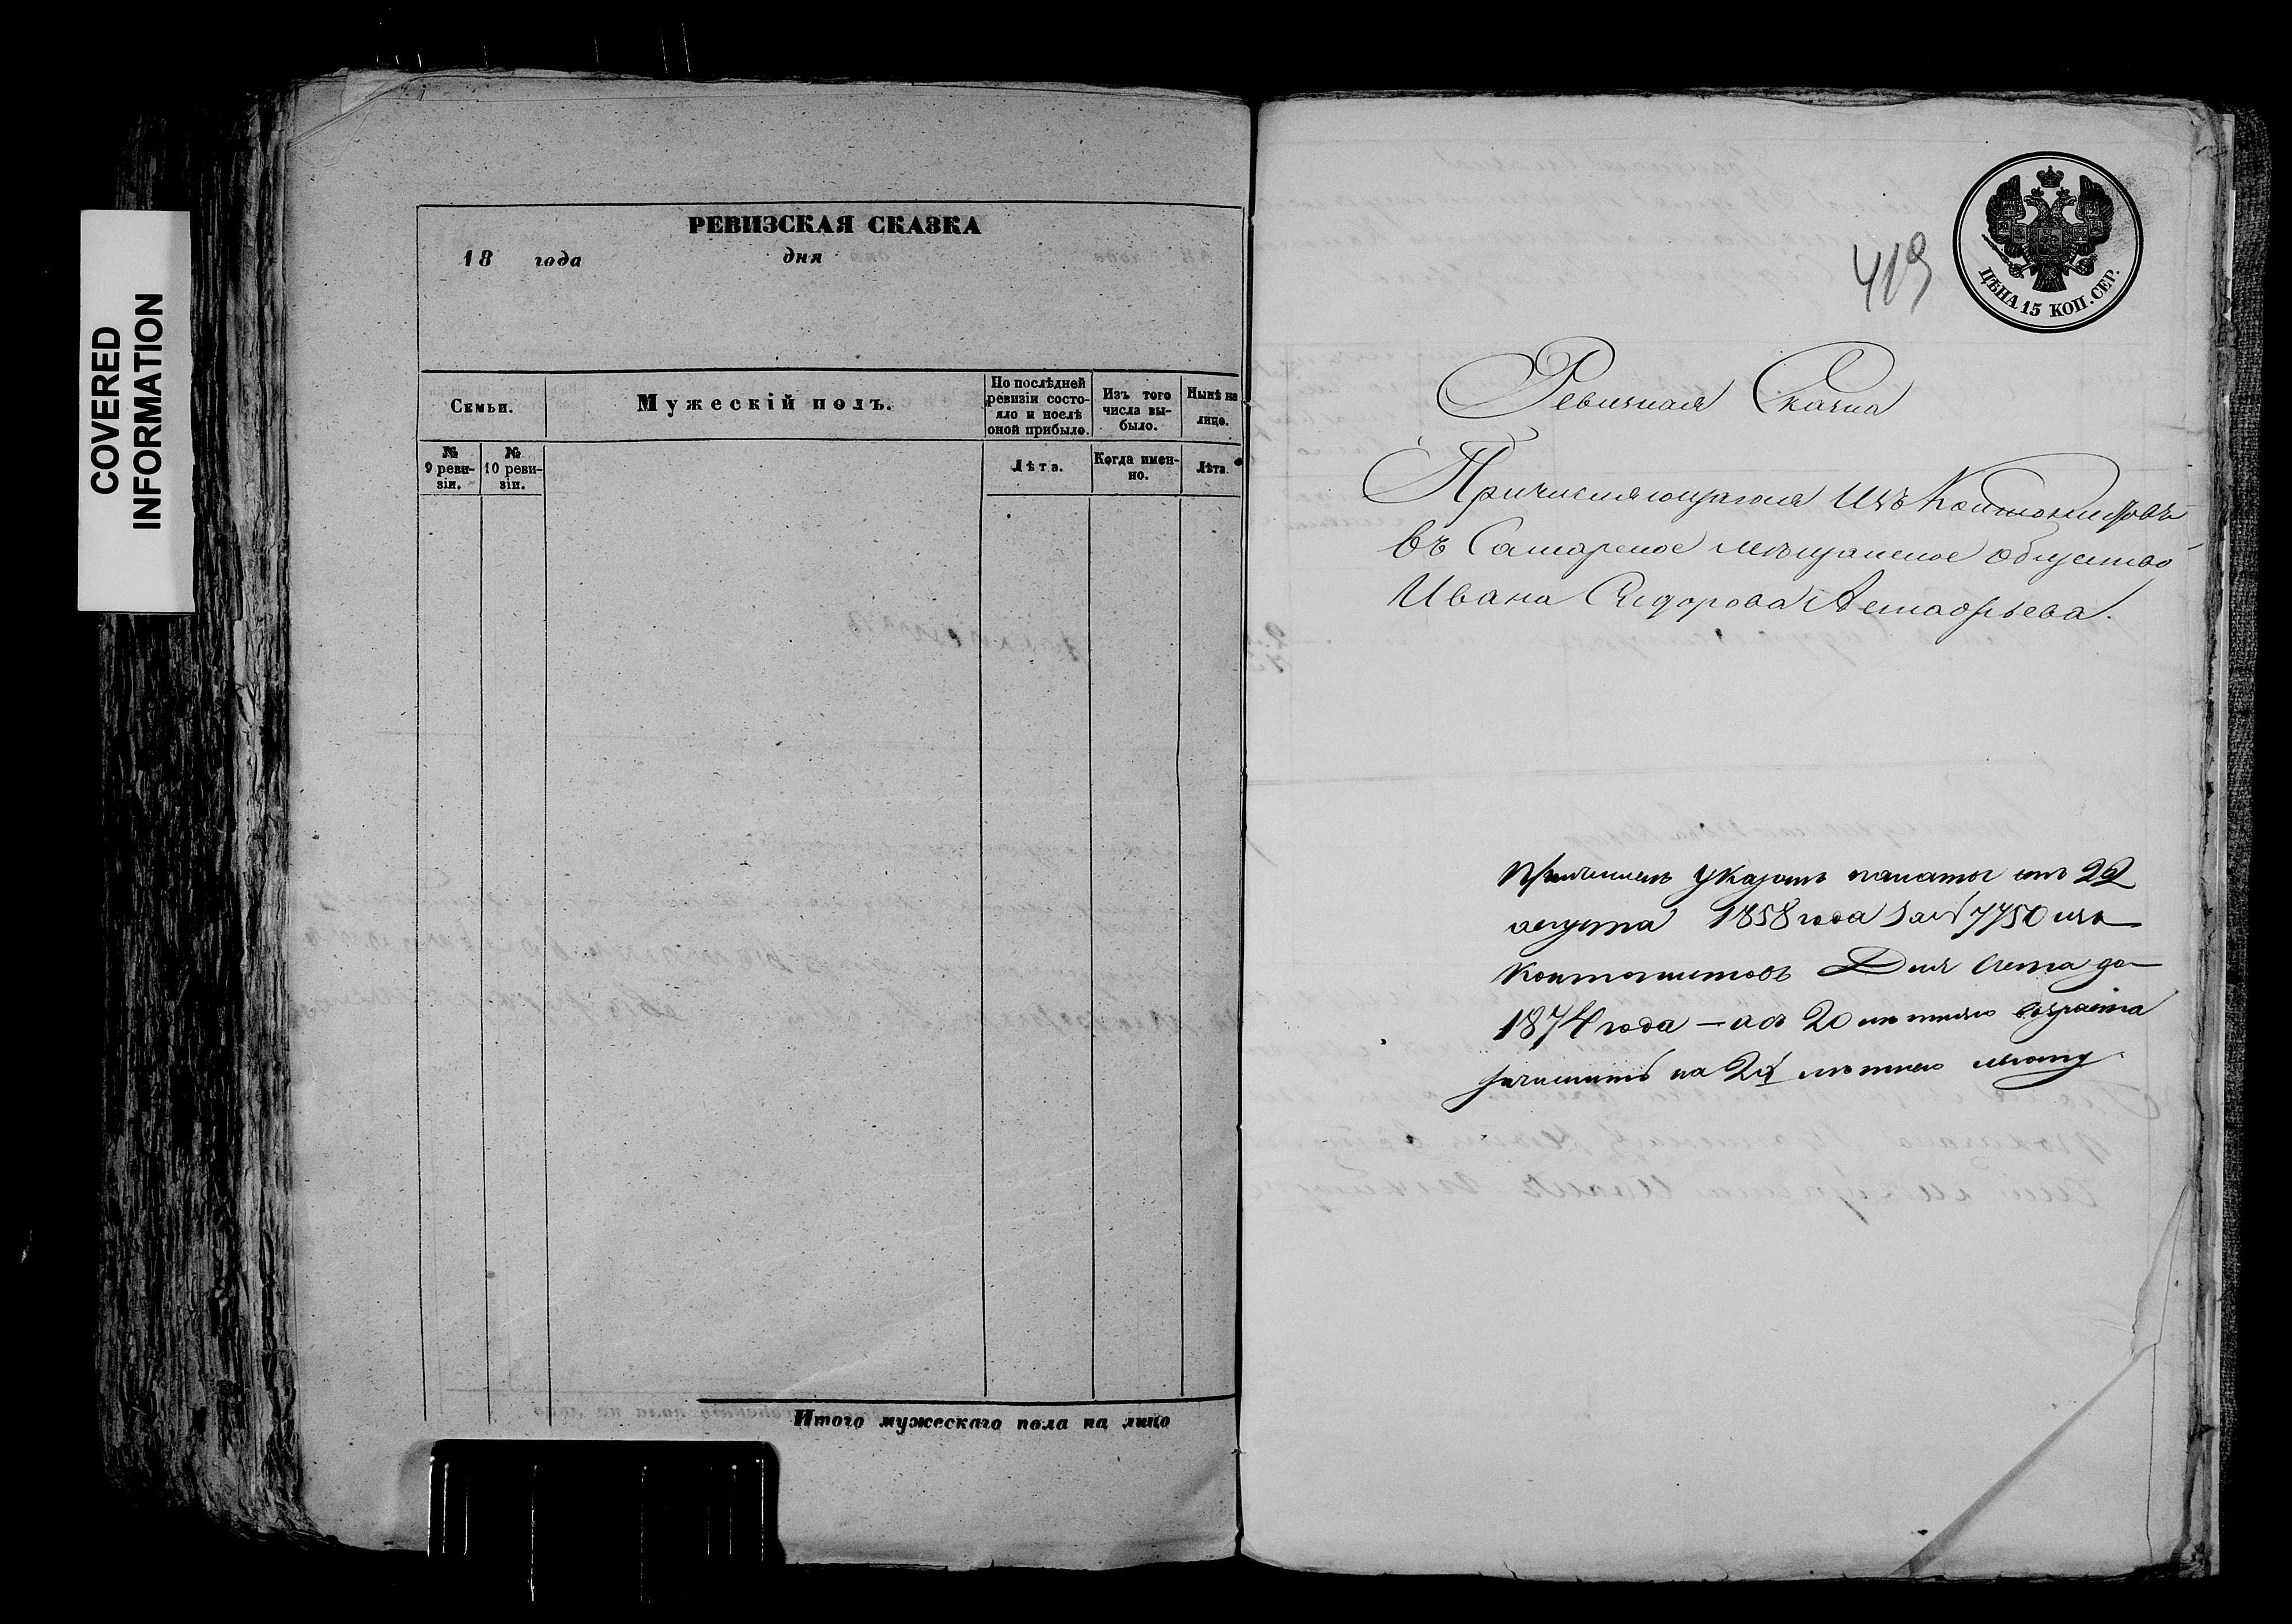 COVERED
INFORMATION
РЕВИЗСКАЯ СКАЗКА
18 года дня
Семьи.
Мужескій полъ.
По послѣдней
ревизіи состо-
яло и послѣ
оной прибыло.
Изъ того
числа вы-
было.
Нынѣ на
лицо.
№
9 реви-
зіи.
№
10 реви-
зіи.
Лѣта.
Когда имен-
но.
Лѣта.
Итого мужескаго пола на лицо
419
ЦѢНА 15 КОП. СЕР.
Ревизская Сказка
Причисляющагося Изъ Кантонистовъ
въ Самарское мѣщанское общество
Ивана Сидорова Астафьева.
Причисленъ Указомъ палаты отъ 22
августа 1858 года за № 7750 изъ
Кантонистовъ Для счета до
1874 года — а съ 20 лѣтняго возраста
зачислить на лѣтнюю льготу